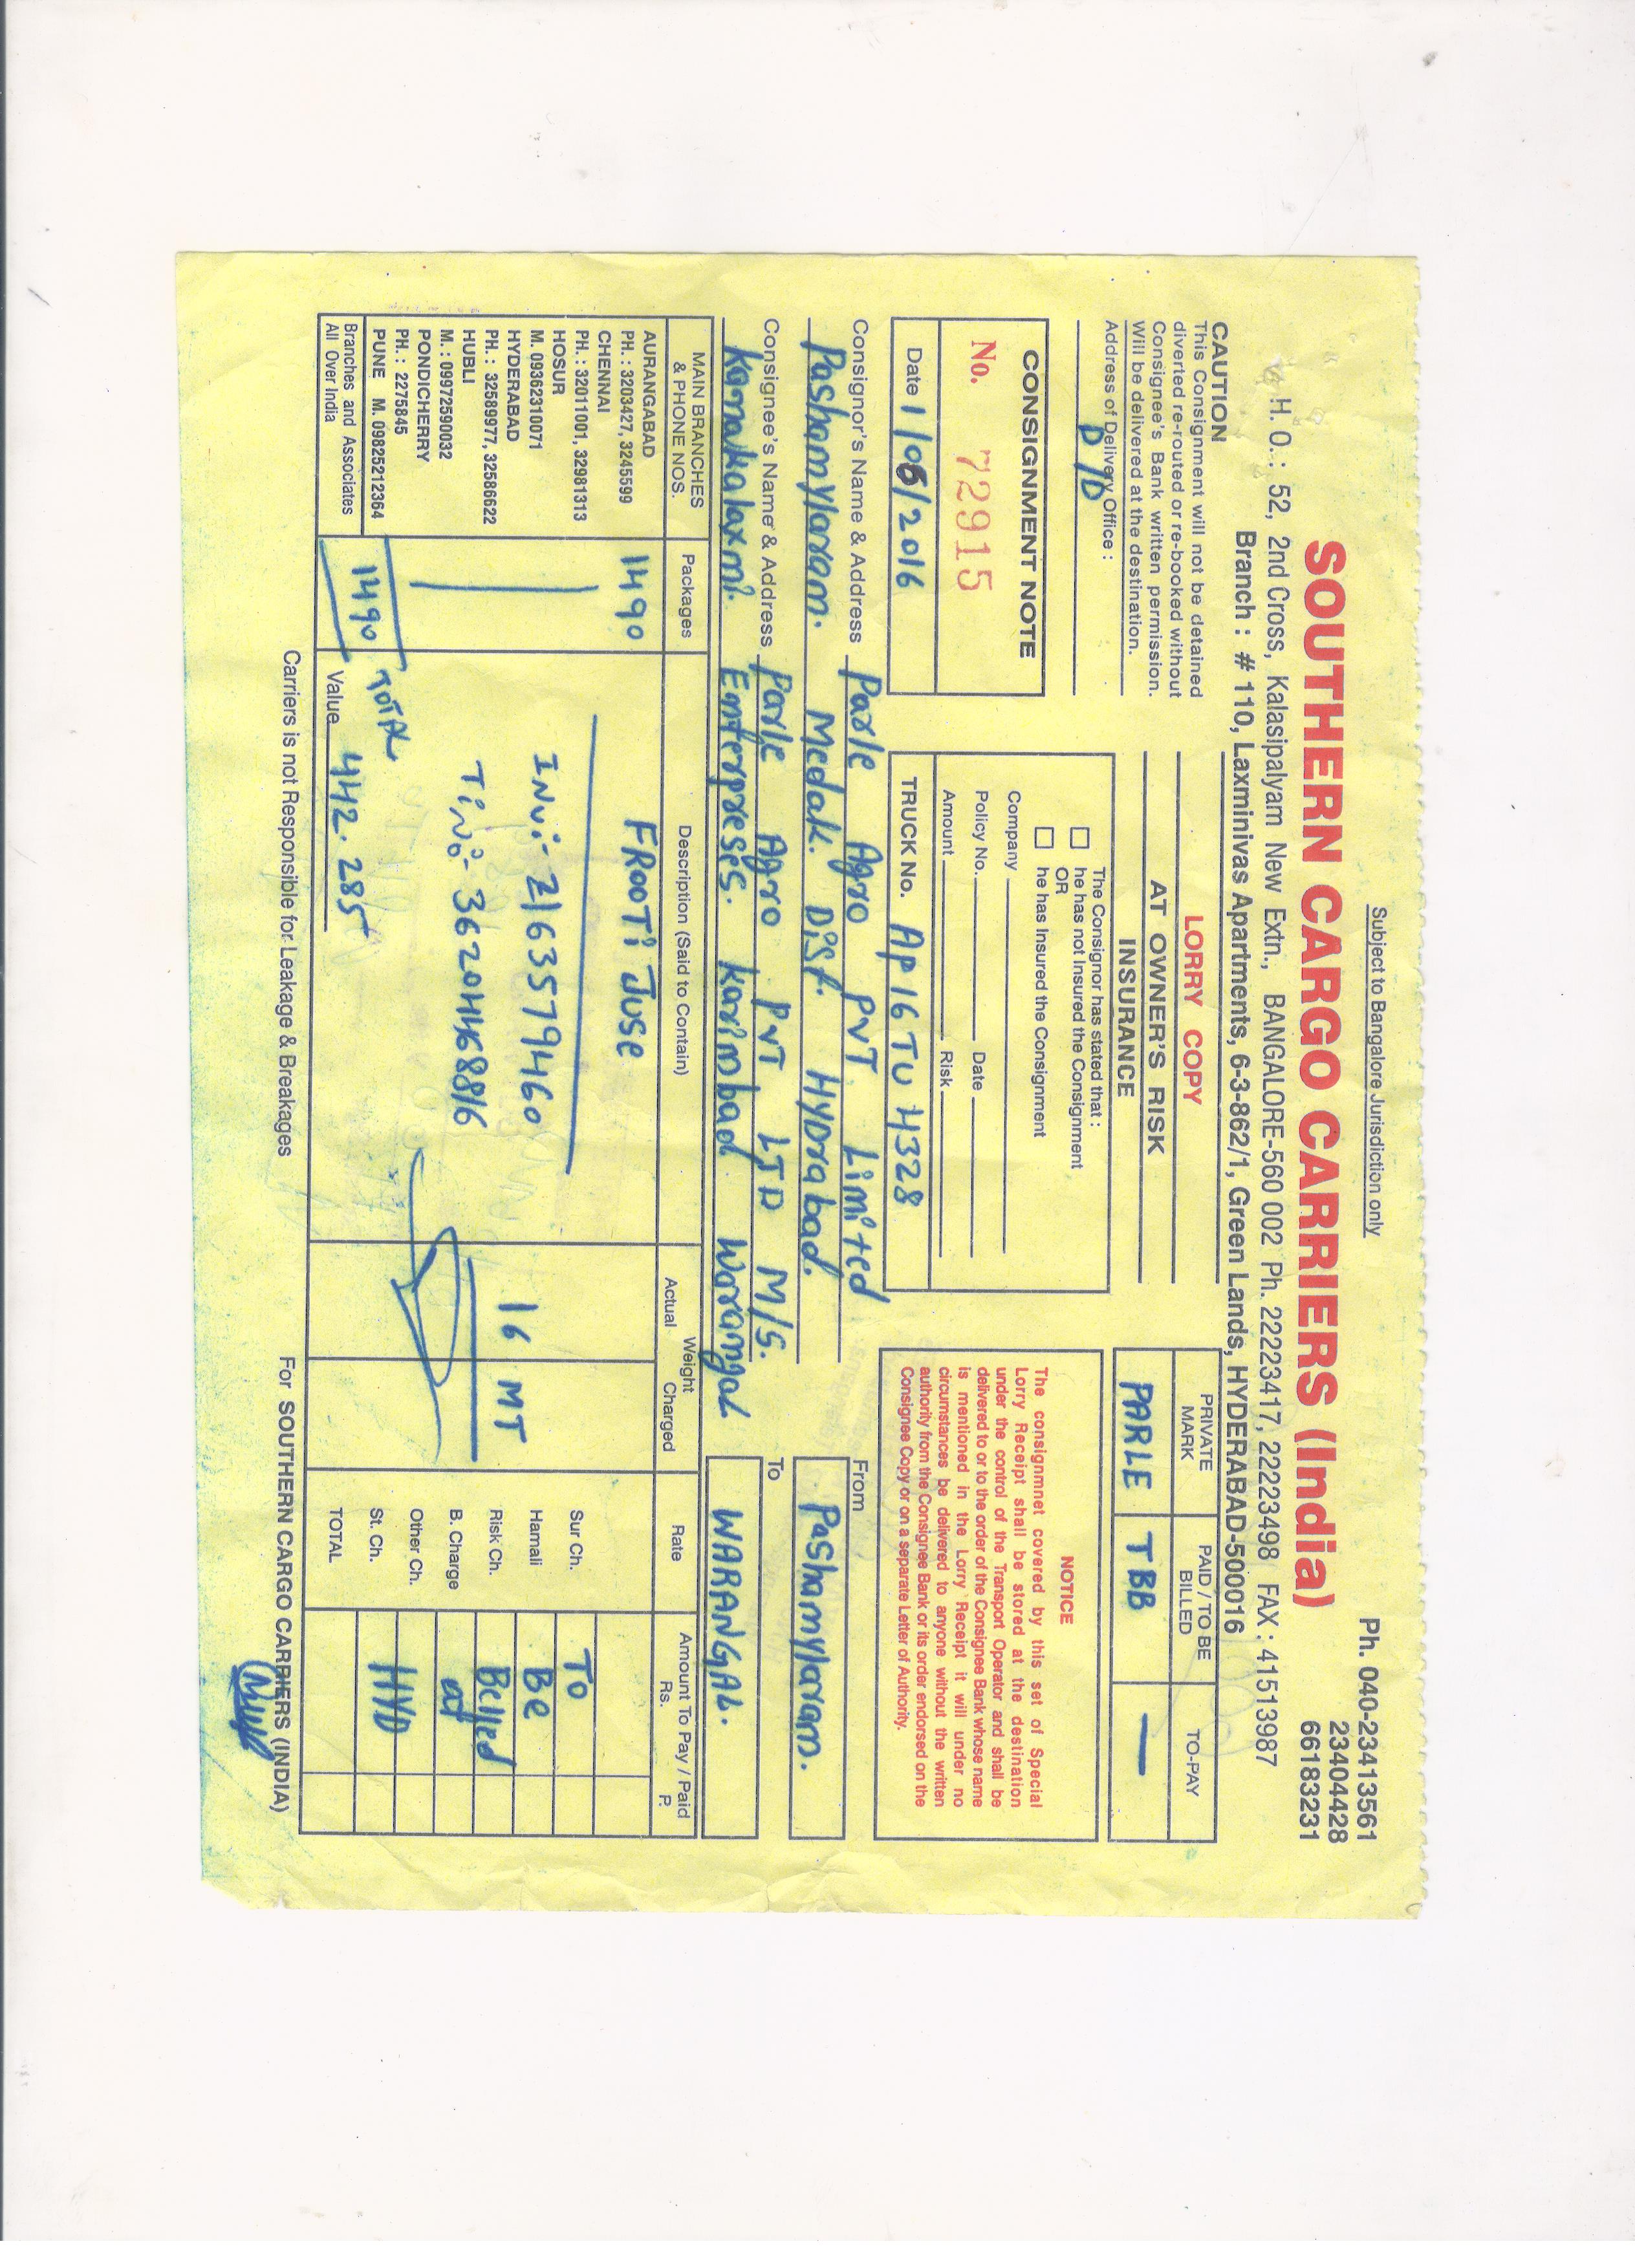 Subject to Bangalore Jurisdiction only
Ph. 040-23413561
23404428
66183231
SOUTHERN CARGO CARRIERS (India)
H. O. : 52, 2nd Cross, Kalasipalyam New Extn., BANGALORE-560 002 Ph. 22223417, 22223498 FAX : 41513987
Branch : # 110, Laxminivas Apartments, 6-3-862/1, Green Lands, HYDERABAD-500016
CAUTION
This Consignment will not be detained
diverted re-routed or re-booked without
Consignee's Bank written permission.
Will be delivered at the destination.
Address of Delivery Office :
D/D
LORRY COPY
AT OWNER'S RISK
INSURANCE
The Consignor has stated that :
he has not Insured the Consignment
OR
he has Insured the Consignment
Company
Policy No. Date
Amount Risk
TRUCK No. AP16 TU 4328
PRIVATE MARK PAID / TO BE BILLED TO-PAY
PARLE TBB —
NOTICE
The consignmnet covered by this set of Special
Lorry Receipt shall be stored at the destination
under the control of the Transport Operator and shall be
delivered to or to the order of the Consignee Bank whose name
is mentioned in the Lorry Receipt it will under no
circumstances be delivered to anyone without the written
authority from the Consignee Bank or its order endorsed on the
Consignee Copy or on a separate Letter of Authority.
CONSIGNMENT NOTE
No. 72915
Date 1/06/2016
Consignor's Name & Address Parle Agro PVT Limited
Pashamylaram. Medak. Dist. HYDrabad.
From
Pashamylaram.
Consignee's Name & Address Parle Agro PVT LTD M/S.
Kanakalaxmi. Enterpreses. Karimbad Warangal
To
WARANGAL.
MAIN BRANCHES & PHONE NOS.
Packages
Description (Said to Contain)
Weight
Actual Charged
Rate
Amount To Pay / Paid
Rs. P.
AURANGABAD
PH. : 3203427, 3245599
CHENNAI
PH. : 32011001, 32981313
HOSUR
M. 09362310071
HYDERABAD
PH. : 32589977, 32586622
HUBLI
M. : 09972590032
PONDICHERRY
PH. : 2275845
PUNE M. 09825212364
Branches and Associates
All Over India
1490
1490
FROOTi JUSE
INV:- Z163579460
TiNo:- 36204468816
TOTAL
Value 442.285
16 MT
Sur Ch. TO
Hamali Be
Risk Ch. Belled
B. Charge at
Other Ch.
HYD
St. Ch.
TOTAL
Carriers is not Responsible for Leakage & Breakages
For SOUTHERN CARGO CARRIERS (INDIA)